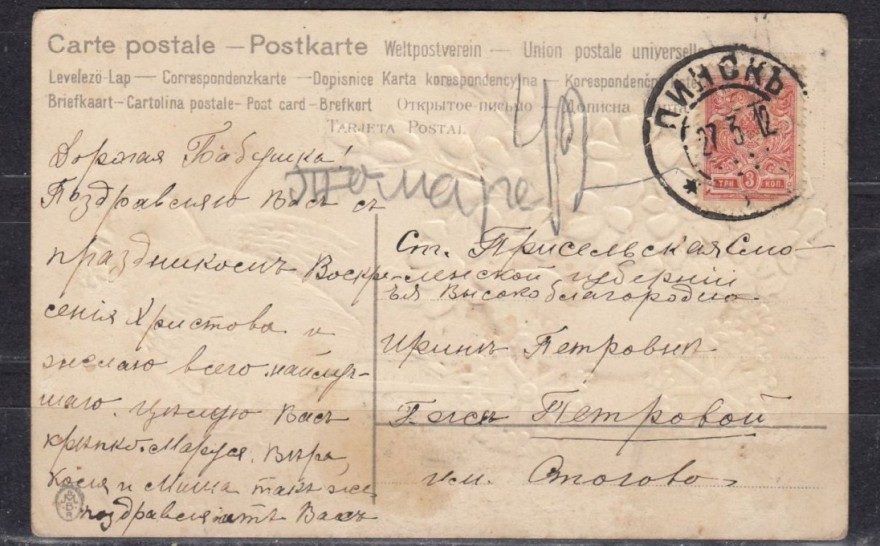 Carte postale — Postkarte Weltpostverein — Union postale universelle
Levelező-Lap — Correspondenzkarte — Dopisnice Karta korespondencyjna — Korespondenčn
Briefkaart - Cartolina postale - Post card - Brefkort Открытое письмо — Дописна
TARJETA POSTAL
ПИНСКЪ
27 3 12
ТРИ 3 КОП.
Дорогая Бабушка!
Поздравляю Васъ съ
праздникомъ Воскре-
сенія Христова и
желаю всего наилуч-
шаго. Цѣлую Васъ
крѣпко. Маруся. Вѣра
Коля и Миша такъ же
поздравляютъ Васъ
Ст. Присельская Смо-
ленской губерніи
Ея Высокоблагородію
Иринѣ Петровнѣ
Г-жѣ Петровой
им.